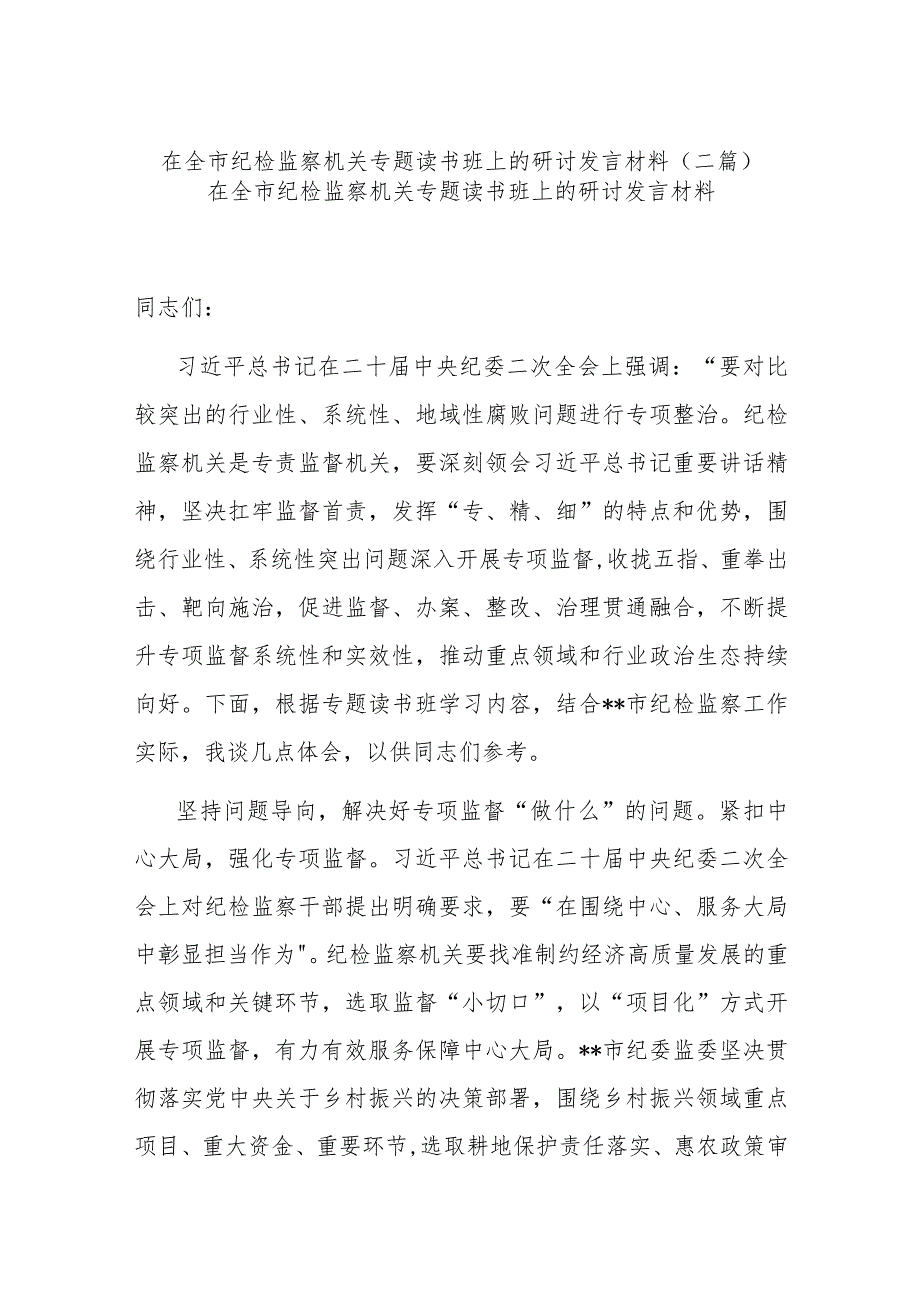 在全市纪检监察机关专题读书班上的研讨发言材料（二篇）
在全市纪检监察机关专题读书班上的研讨发言材料
同志们：
习近平总书记在二十届中央纪委二次全会上强调：“要对比
较突出的行业性、系统性、地域性腐败问题进行专项整治。纪检
监察机关是专责监督机关，要深刻领会习近平总书记重要讲话精
神，坚决扛牢监督首责，发挥“专、精、细”的特点和优势，围
绕行业性、系统性突出问题深入开展专项监督,收拢五指、重拳出
击、靶向施治，促进监督、办案、整改、治理贯通融合，不断提
升专项监督系统性和实效性，推动重点领域和行业政治生态持续
向好。下面，根据专题读书班学习内容，结合**市纪检监察工作
实际，我谈几点体会，以供同志们参考。
坚持问题导向，解决好专项监督“做什么”的问题。紧扣中
心大局，强化专项监督。习近平总书记在二十届中央纪委二次全
会上对纪检监察干部提出明确要求，要“在围绕中心、服务大局
中彰显担当作为"。纪检监察机关要找准制约经济高质量发展的重
点领域和关键环节，选取监督“小切口”，以“项目化”方式开
展专项监督，有力有效服务保障中心大局。**市纪委监委坚决贯
彻落实党中央关于乡村振兴的决策部署，围绕乡村振兴领域重点
项目、重大资金、重要环节,选取耕地保护责任落实、惠农政策审